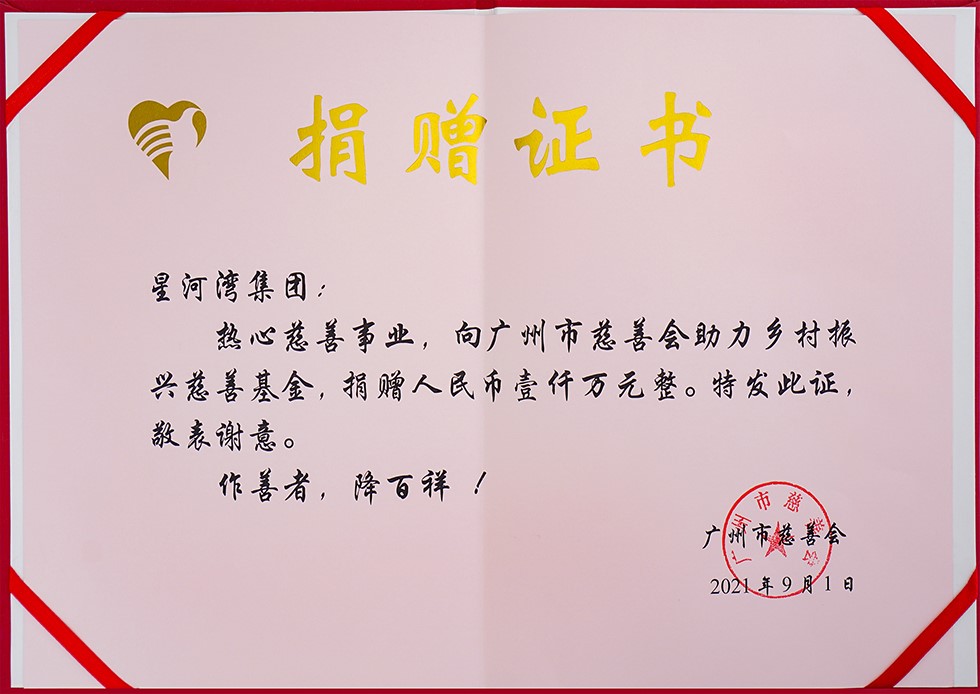 捐赠证书
星河湾集团：
热心慈善事业，向广州市慈善会助力乡村振
兴慈善基金，捐赠人民币壹仟万元整。特发此证，
敬表谢意。
作善者，降百祥！
广州市慈善会
广州市慈善会
2021年9月1日